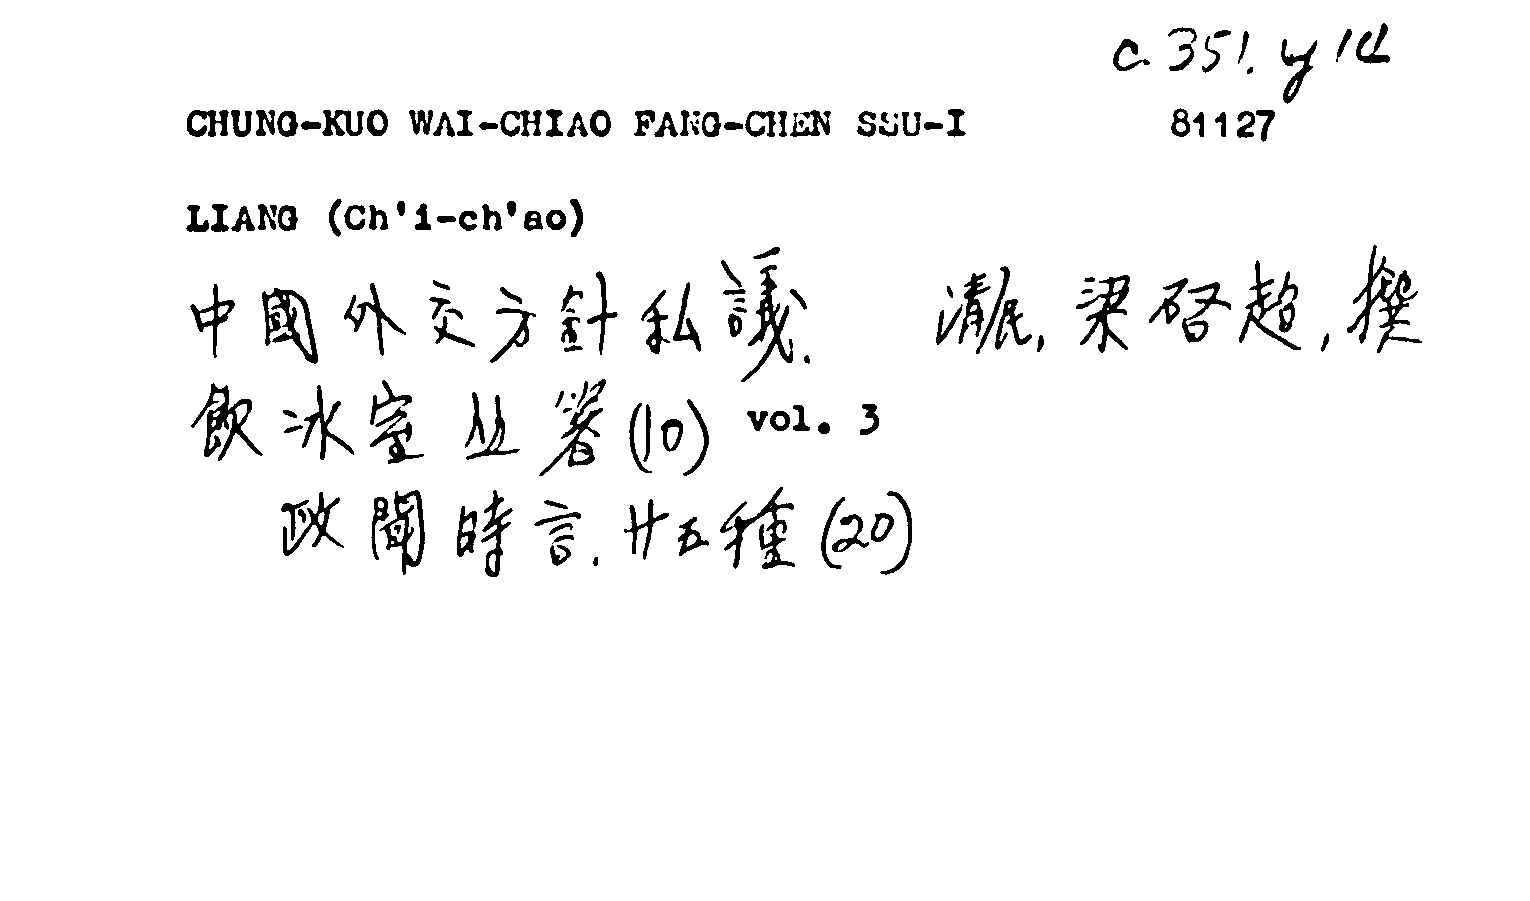 c.351.y14
CHUNG-KUO WAI-CHIAO FANG-CHEN SSU-I 81127
LIANG (Ch'i-ch'ao)
中國外交方針私議. 清民, 梁啓超, 撰
飲冰室丛著(10) vol. 3
政聞時言. 廿五種(20)